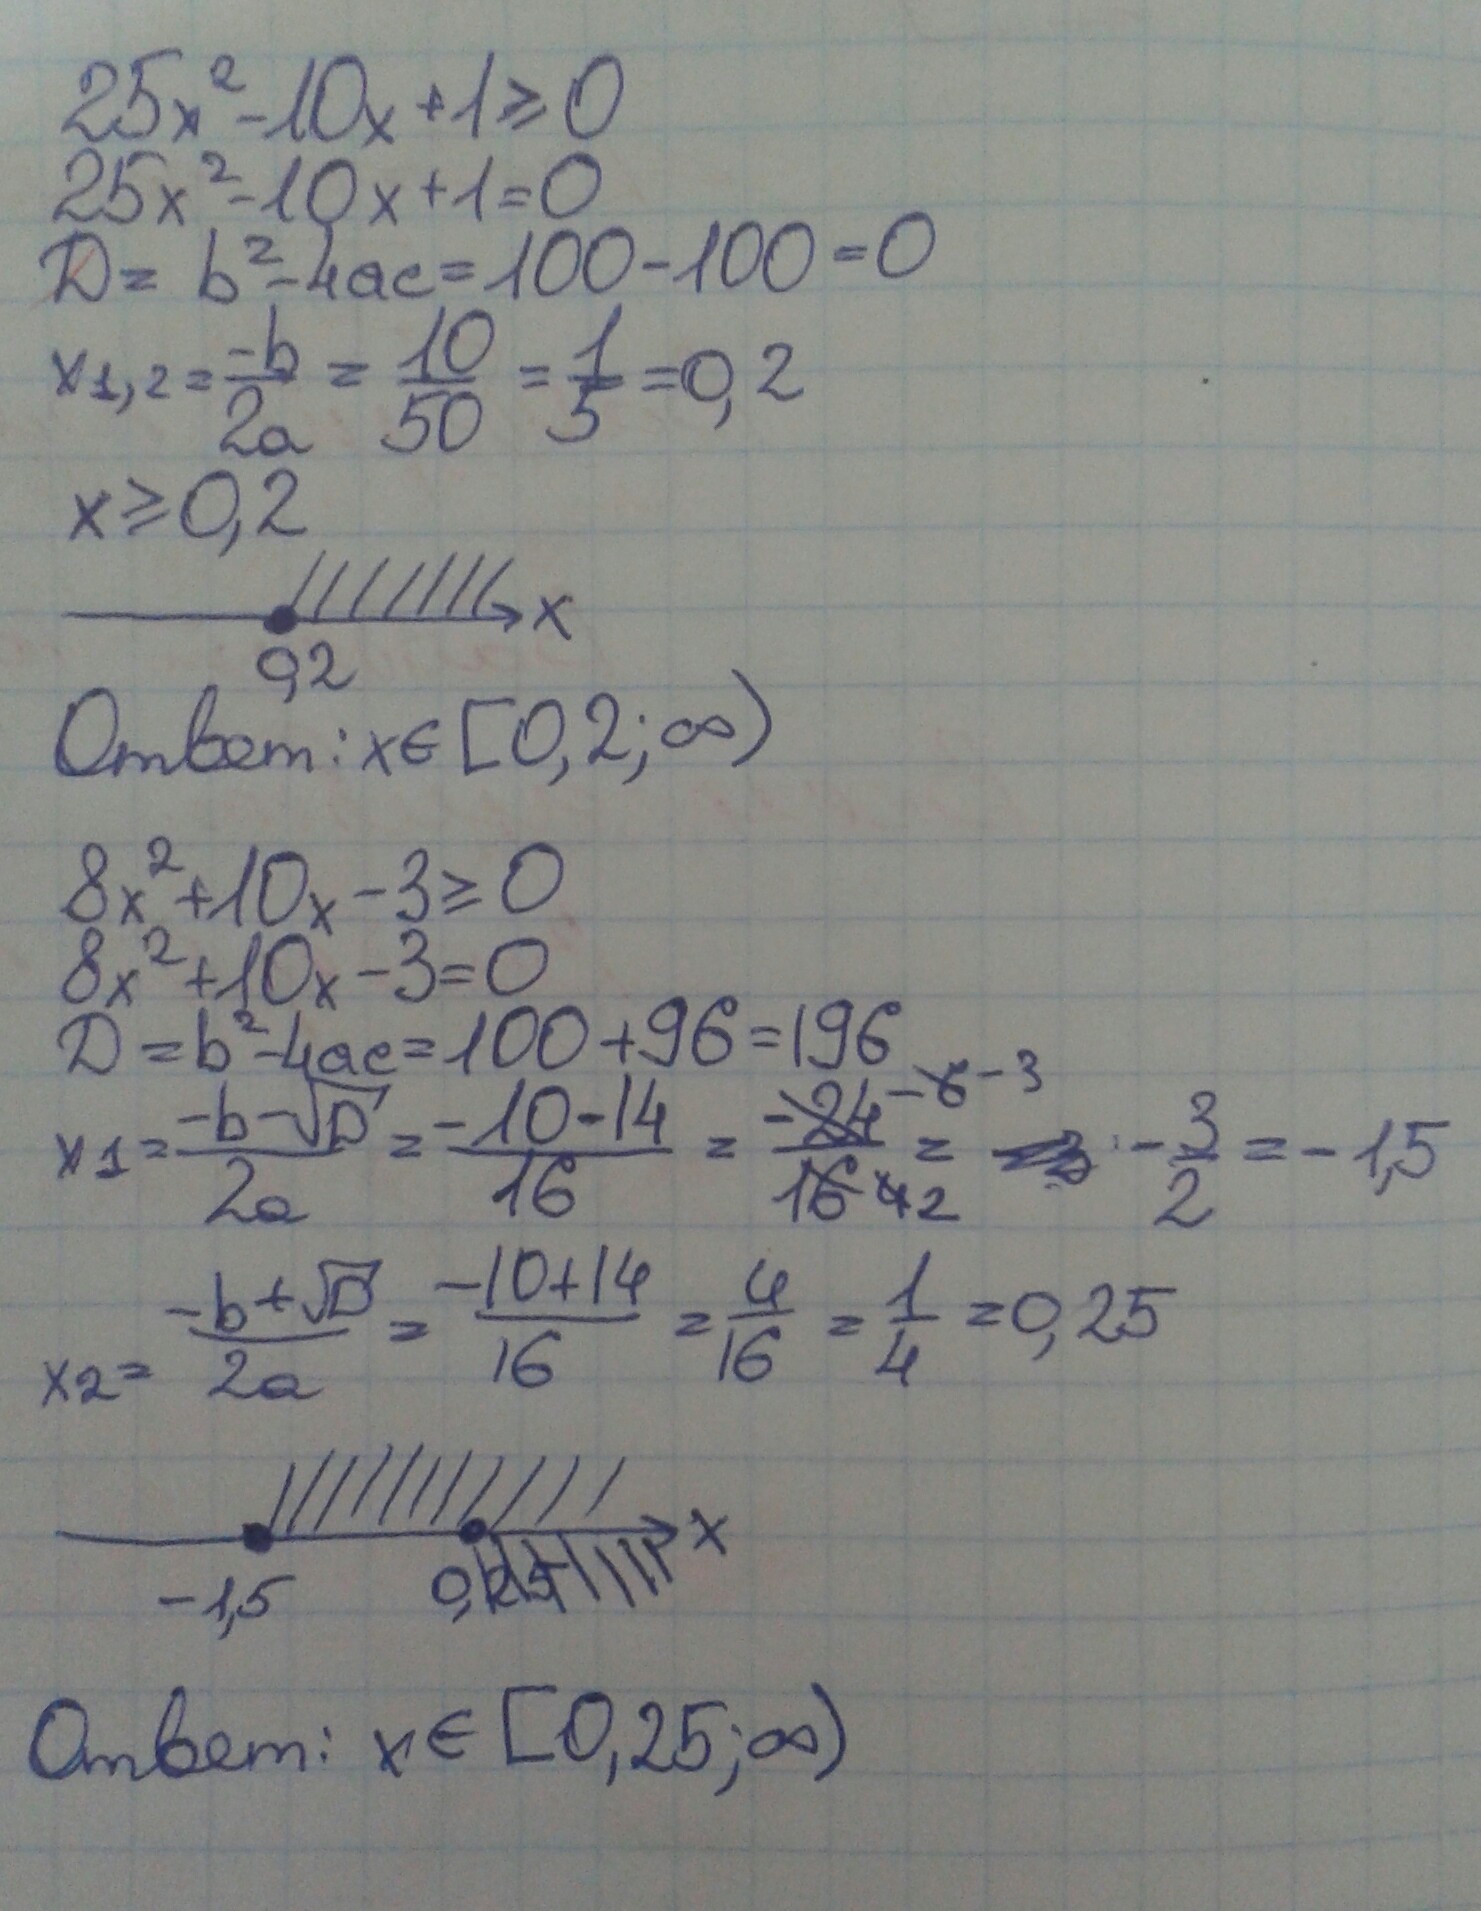 25x²-10x+1≥0
25x²-10x+1=0
D= b²-4ac=100-100=0
x1,2=-b/2a = 10/50 = 1/5 =0,2
x≥0,2
x
0,2
Ответ: x∈[0,2;∞)
8x²+10x-3≥0
8x²+10x-3=0
D=b²-4ac=100+96=196
x1=-b-√D/2a = -10-14/16 = -24/16 -6 -3 4 2 = -3/2 = -1,5
x2= -b+√D/2a = -10+14/16 = 4/16 = 1/4 =0,25
x
-1,5 0,25
Ответ: x∈[0,25;∞)